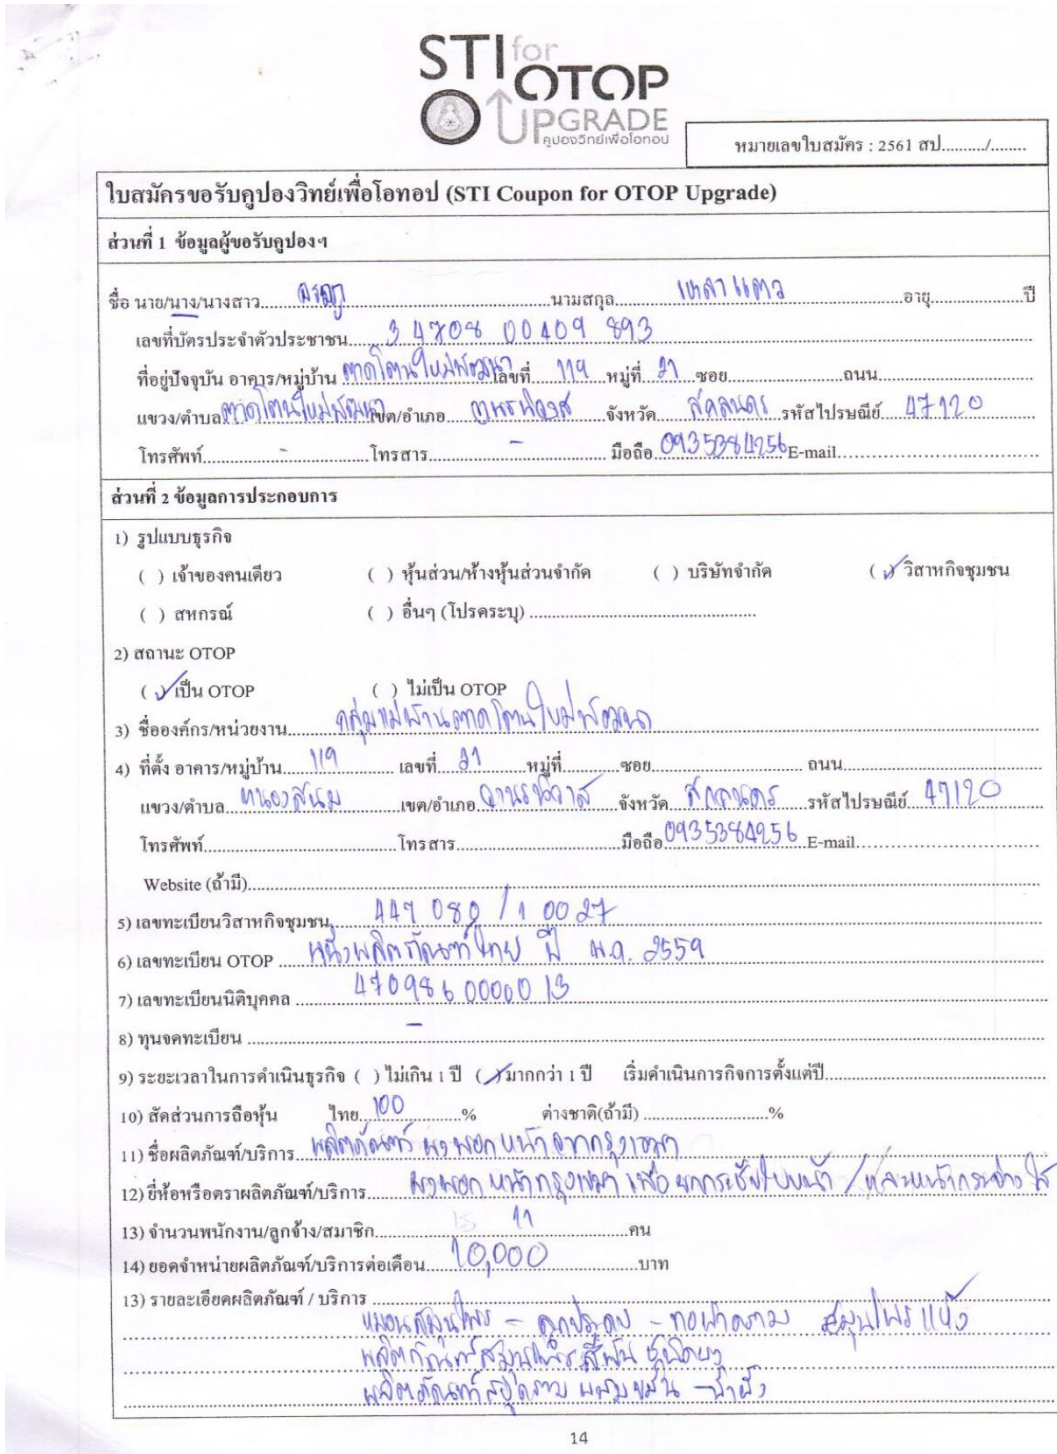 STI for
OTOP
UPGRADE
คูปองวิทย์เพื่อโอทอป
หมายเลขใบสมัคร : 2561 สป........../........
ใบสมัครขอรับคูปองวิทย์เพื่อโอทอป (STI Coupon for OTOP Upgrade)
ส่วนที่ 1 ข้อมูลผู้ขอรับคูปองฯ
ชื่อ นาย/นาง/นางสาว นามสกุล เหลาแตว อายุ ปี
เลขที่บัตรประจำตัวประชาชน 3 4708 00409 893
ที่อยู่ปัจจุบัน อาคาร/หมู่บ้าน ตาดโตนใหม่พัฒนา เลขที่ 119 หมู่ที่ 21 ซอย ถนน
แขวง/ตำบล ตาดโตนใหม่พัฒนา เขต/อำเภอ วานรนิวาส จังหวัด สกลนคร รหัสไปรษณีย์ 47120
โทรศัพท์ - โทรสาร - มือถือ 0935384256 E-mail
ส่วนที่ 2 ข้อมูลการประกอบการ
1) รูปแบบธุรกิจ
( ) เจ้าของคนเดียว ( ) หุ้นส่วน/ห้างหุ้นส่วนจำกัด ( ) บริษัทจำกัด (✓) วิสาหกิจชุมชน
( ) สหกรณ์ ( ) อื่นๆ (โปรดระบุ)
2) สถานะ OTOP
(✓) เป็น OTOP ( ) ไม่เป็น OTOP
3) ชื่อองค์กร/หน่วยงาน กลุ่มแม่บ้านตาดโตนใหม่พัฒนา
4) ที่ตั้ง อาคาร/หมู่บ้าน 119 เลขที่ 21 หมู่ที่ ซอย ถนน
แขวง/ตำบล หนองสนม เขต/อำเภอ วานรนิวาส จังหวัด สกลนคร รหัสไปรษณีย์ 47120
โทรศัพท์ โทรสาร มือถือ 0935384256 E-mail
Website (ถ้ามี)
5) เลขทะเบียนวิสาหกิจชุมชน 447 080 / 1 0027
6) เลขทะเบียน OTOP หนึ่งผลิตภัณฑ์ไทย ปี พ.ศ. 2559
7) เลขทะเบียนนิติบุคคล 470986 00000 13
8) ทุนจดทะเบียน -
9) ระยะเวลาในการดำเนินธุรกิจ ( ) ไม่เกิน 1 ปี (✓) มากกว่า 1 ปี เริ่มดำเนินการกิจการตั้งแต่ปี
10) สัดส่วนการถือหุ้น ไทย 100 % ต่างชาติ(ถ้ามี) %
11) ชื่อผลิตภัณฑ์/บริการ ผลิตภัณฑ์ ผงพอกหน้าจากกรุงเขมา
12) ยี่ห้อหรือตราผลิตภัณฑ์/บริการ ผงพอกหน้ากรุงเขมา เพื่อยกกระชับใบหน้า / และหน้ากระจ่างใส
13) จำนวนพนักงาน/ลูกจ้าง/สมาชิก 15 11 คน
14) ยอดจำหน่ายผลิตภัณฑ์/บริการต่อเดือน 10,000 บาท
13) รายละเอียดผลิตภัณฑ์ / บริการ
หมอนสมุนไพร - ลูกประคบ - ทอผ้าคราม สมุนไพรแห้ง
ผลิตภัณฑ์สมุนไพร
ผลิตภัณฑ์สบู่คราม ผสมขมิ้น - น้ำผึ้ง
14